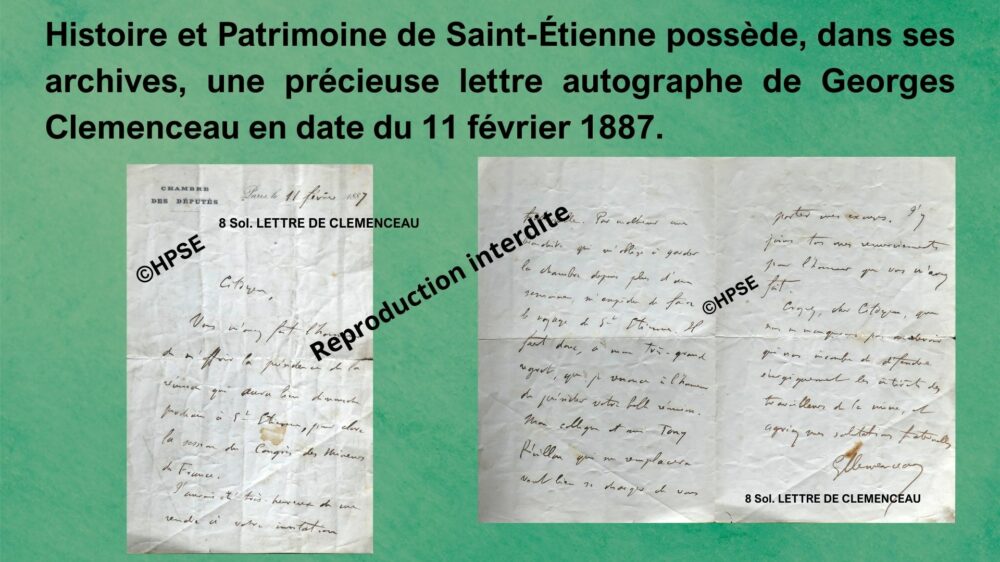 Histoire et Patrimoine de Saint-Étienne possède, dans ses
archives, une précieuse lettre autographe de Georges
Clemenceau en date du 11 février 1887.
CHAMBRE
DES DÉPUTÉS
Paris le 11 février 1887
8 Sol. LETTRE DE CLEMENCEAU
©HPSE
Citoyen,
Vous m'avez fait l'honneur
de m'offrir la présidence de la
réunion qui aura lieu dimanche
prochain à St Etienne, pour clore
la session du Congrès des Mineurs
de France.
J'aurais été très heureux de me
rendre à votre invitation
Reproduction interdite
Par malheur une
bronchite qui m'oblige à garder
la chambre depuis plus d'une
semaine m'empêche de faire
le voyage de St Etienne. Il
faut donc, à mon très-grand
regret, que je renonce à l'honneur
de présider votre belle réunion.
Mon collègue et ami Tony
Révillon qui me remplacera
veut bien se charger de vous
porter mes excuses. J'y
joins tous mes remerciements
pour l'honneur que vous m'avez
fait.
©HPSE
Croyez, cher Citoyen, que
nous ne manquerons pas au devoir
qui nous incombe de défendre
énergiquement les intérêts des
travailleurs de la mine, et
agréez mes salutations fraternelles
GClemenceau
8 Sol. LETTRE DE CLEMENCEAU